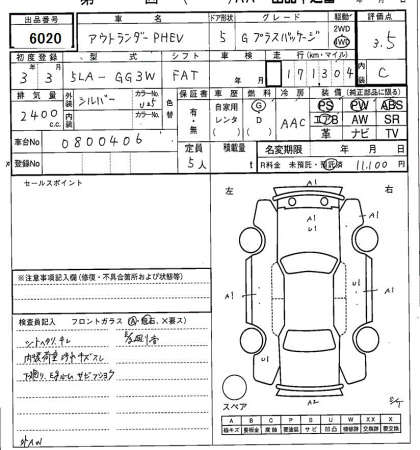 出品番号 車名 ドア形状 グレード 駆動 評価点
6020 アウトランダーPHEV 5 Gプラスパッケージ 2WD 4WD 3.5
初度登録 型式 シフト 車検 走行(km・マイル) 内装
3年3月 5LA-GG3W FAT 年 月 171304 C
排気量 外装 シルバー カラーNo. U25 色替 内装 カラーNo.
2400 c.c.
保証書 車歴 燃料 冷房 装備(純正部品に限る)
有・無 自家用 レンタ G D AAC PS PW ABS
エアB AW SR
革 ナビ TV
車台No 0800406
定員 積載量 名変期限 年 月 日
登録No 5人 t R料金 未預託・預託済 11,100円
セールスポイント
左 右
A1
A1
U1
A1
A1
U1
A1
A2
※注意事項記入欄(修復・不具合箇所および状態等)
検査員記入 フロントガラス(A・飛石、×要ス)
シートヘタリ、キレ
外AW
スペア
A B C P S U W X XX
線キズ 要板金 腐食 要塗装 サビ 凹凸 補修跡 交換跡 要交換